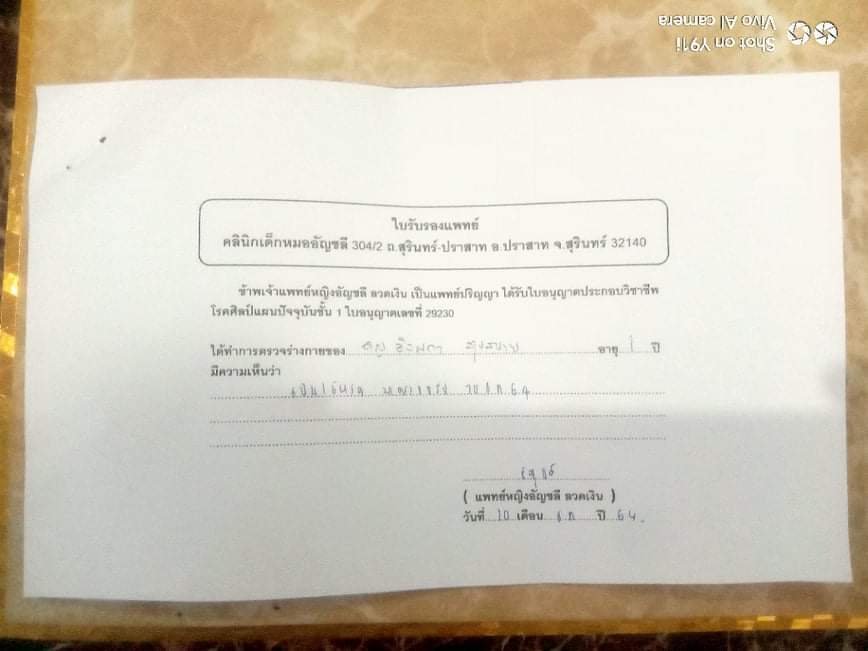 Shot on Y91i
Vivo AI camera
ใบรับรองแพทย์
คลินิกเด็กหมออัญชลี 304/2 ถ.สุรินทร์-ปราสาท อ.ปราสาท จ.สุรินทร์ 32140
ข้าพเจ้าแพทย์หญิงอัญชลี ลวดเงิน เป็นแพทย์ปริญญา ได้รับใบอนุญาตประกอบวิชาชีพ
โรคศิลป์แผนปัจจุบันชั้น 1 ใบอนุญาตเลขที่ 29230
ได้ทำการตรวจร่างกายของ อายุ 1 ปี
มีความเห็นว่า
( แพทย์หญิงอัญชลี ลวดเงิน )
วันที่ 10 เดือน ปี 64